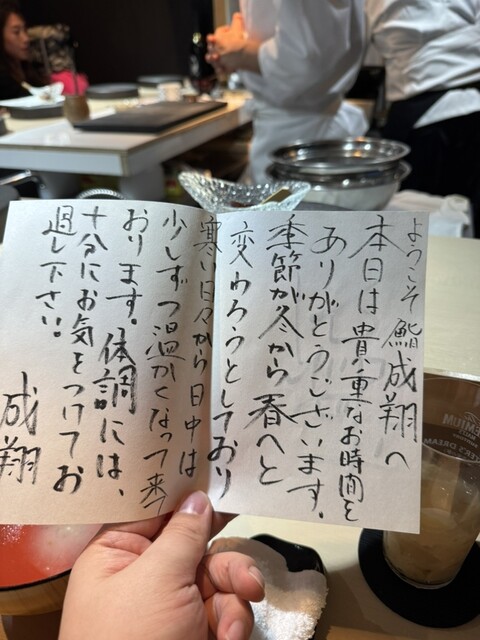 ようこそ鮨成翔へ
本日は貴重なお時間を
ありがとうございます。
季節が冬から春へと
変わろうとしており
寒い日々から日中は
少しずつ温かくなって来て
おります。体調には、
十分にお気をつけてお
過し下さい。
成翔